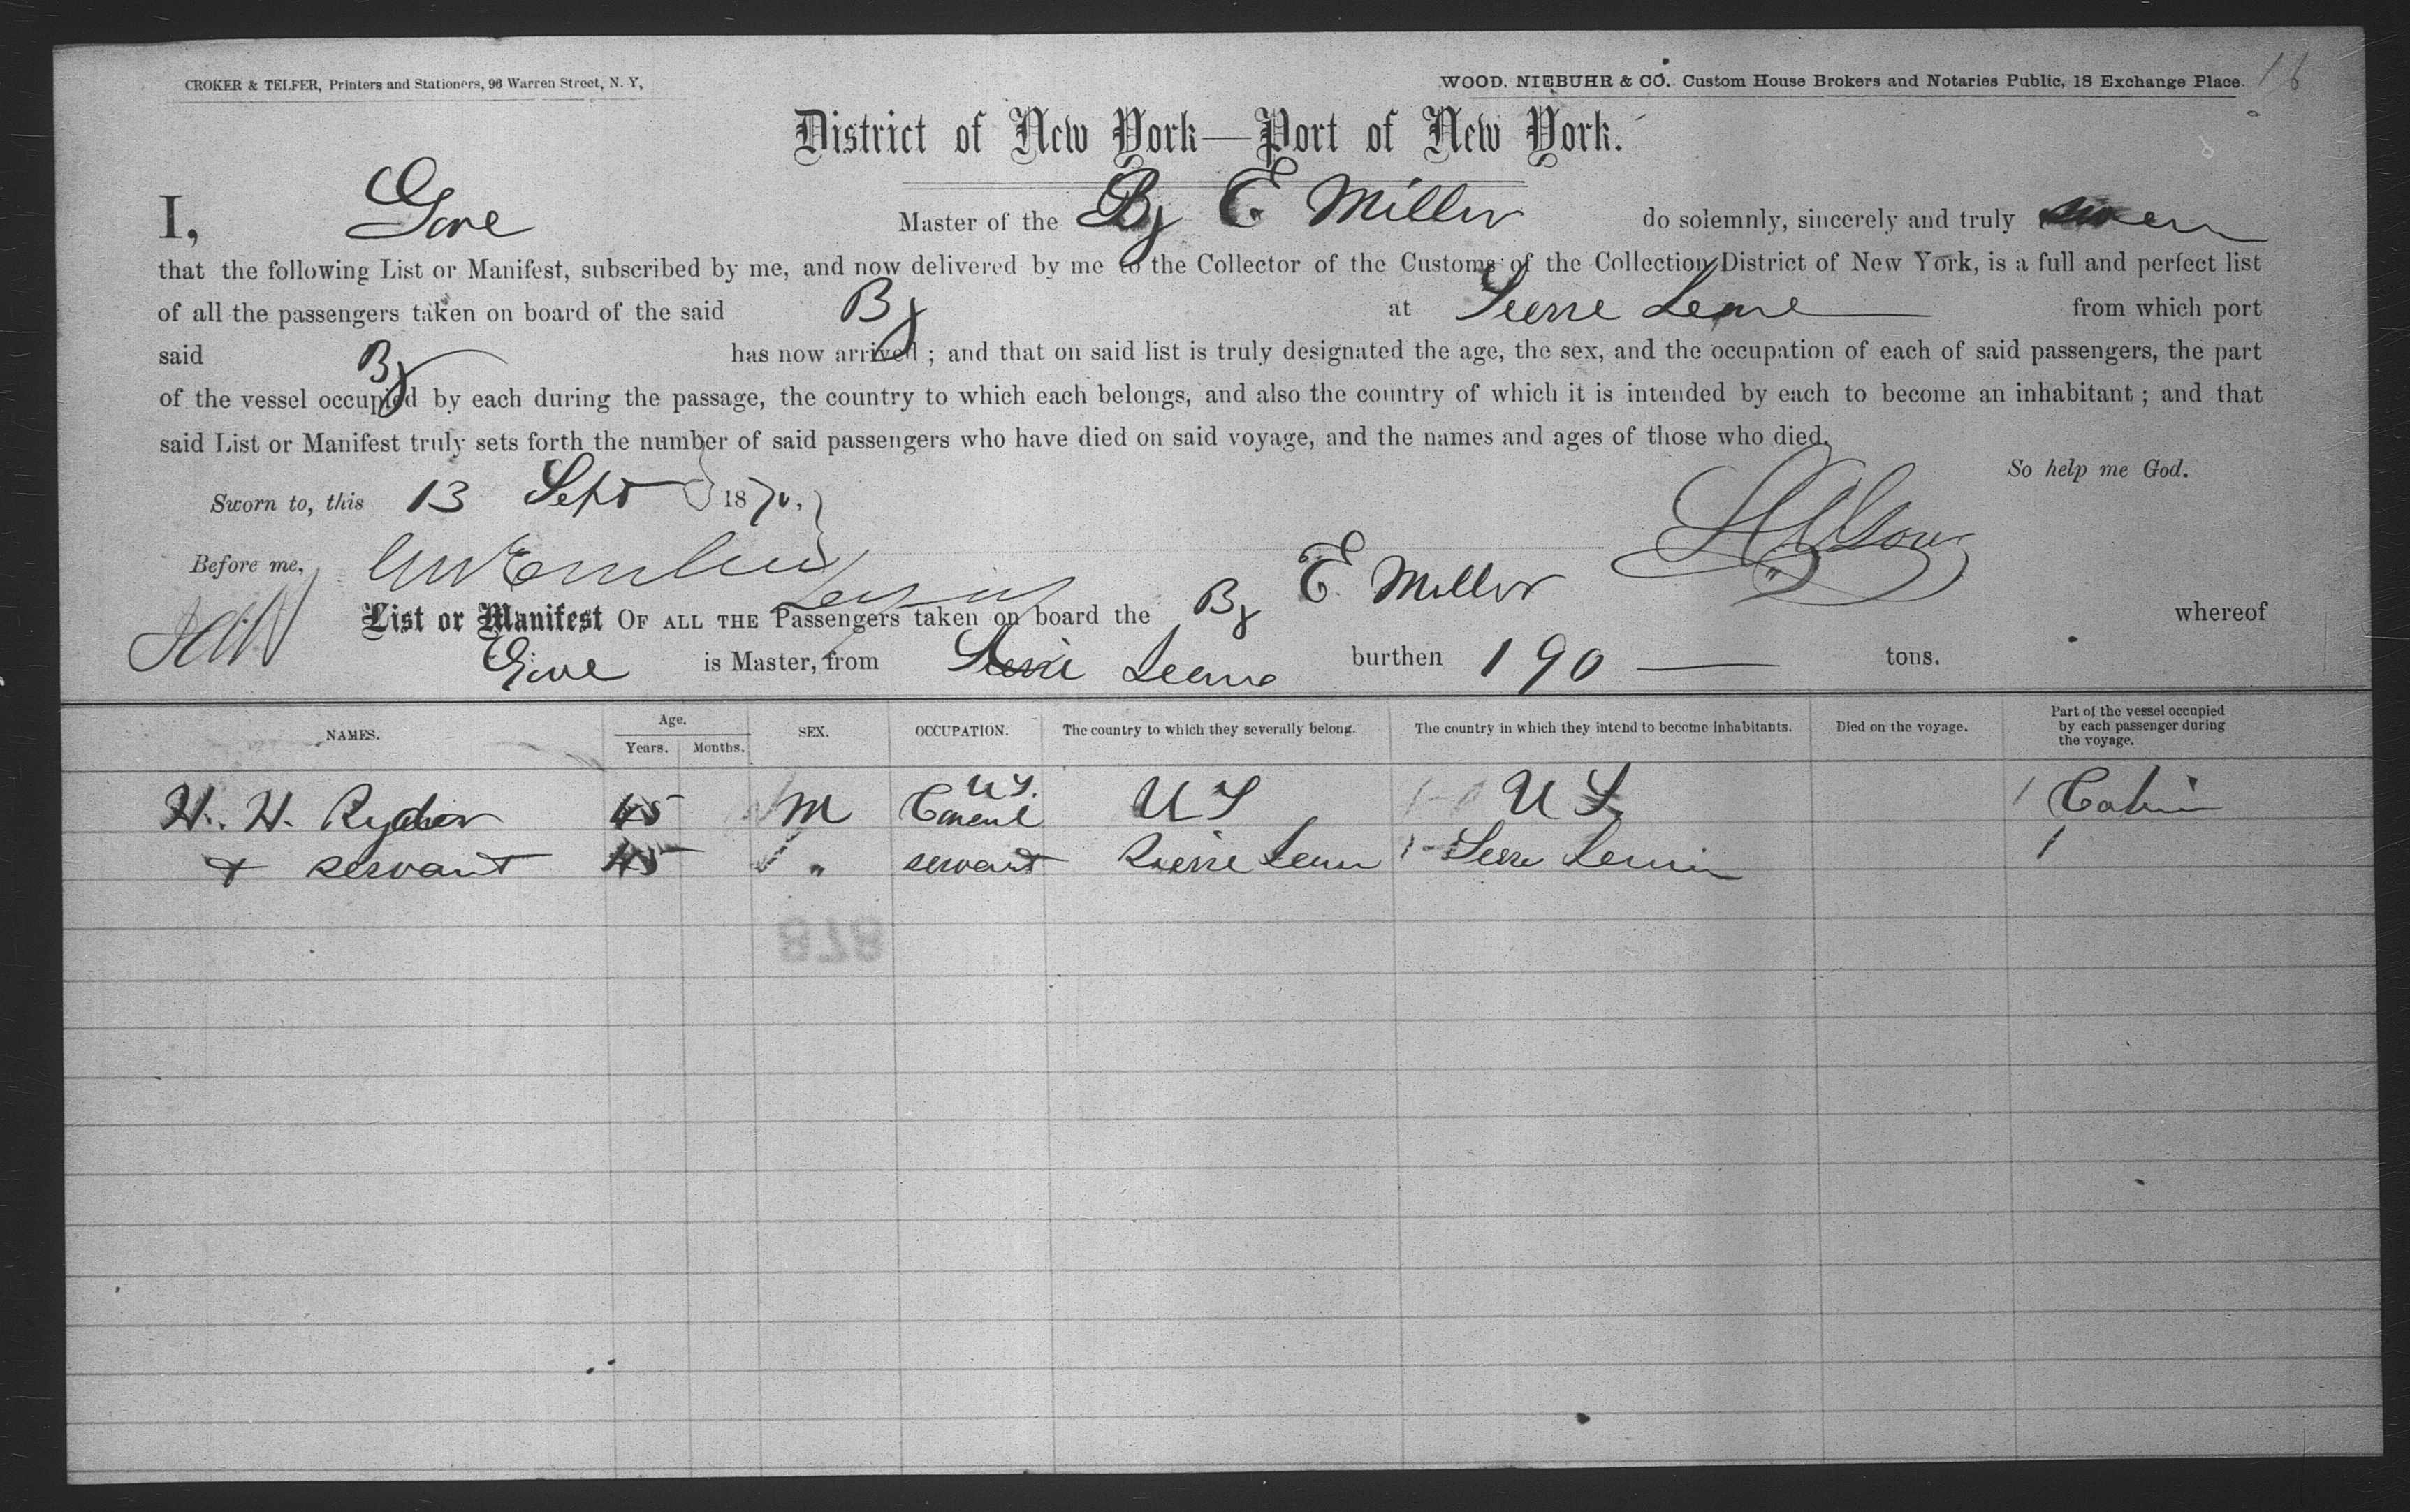 CROKER & TELFER, Printers and Stationers, 96 Warren Street, N. Y,
WOOD, NIEBUHR & CO. Custom House Brokers and Notaries Public, 18 Exchange Place. 16
District of New York—Port of New York.
I, Gore Master of the Bg E Miller do solemnly, sincerely and truly swear
that the following List or Manifest, subscribed by me, and now delivered by me to the Collector of the Customs of the Collection District of New York, is a full and perfect list
of all the passengers taken on board of the said Bg at Sierre Leone from which port
said Bg has now arrived ; and that on said list is truly designated the age, the sex, and the occupation of each of said passengers, the part
of the vessel occupied by each during the passage, the country to which each belongs, and also the country of which it is intended by each to become an inhabitant ; and that
said List or Manifest truly sets forth the number of said passengers who have died on said voyage, and the names and ages of those who died.
So help me God.
Sworn to, this 13 Sept 187
Before me,
List or Manifest OF ALL THE Passengers taken on board the Bg E Miller whereof
Gore is Master, from Sierre Leone burthen 190 tons.
NAMES. Age. Years. Months. SEX. OCCUPATION. The country to which they severally belong. The country in which they intend to become inhabitants. Died on the voyage. Part of the vessel occupied by each passenger during the voyage.
H. H. Ryder 45 M US. Consul US US 1 Cabin
+ servant 45 " servant Sierre Leone Sierre Leone 1
878